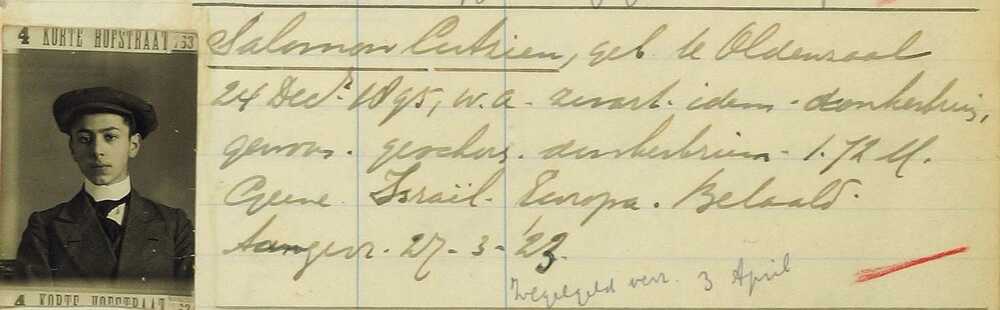 4 KORTE HOFSTRAAT 763
Salomon Cutzien, geb te Oldenzaal
24 Dec.r 1895, w.a. zwart. idem. donkerbruin,
gewoon. geschors. donkerbruin. 1.72 M.
Geene. Israël. Europa. Betaald.
Aangevr. 27-3-'23.
Zegelgeld verr. 3 April
4 KORTE HOFSTRAAT 63